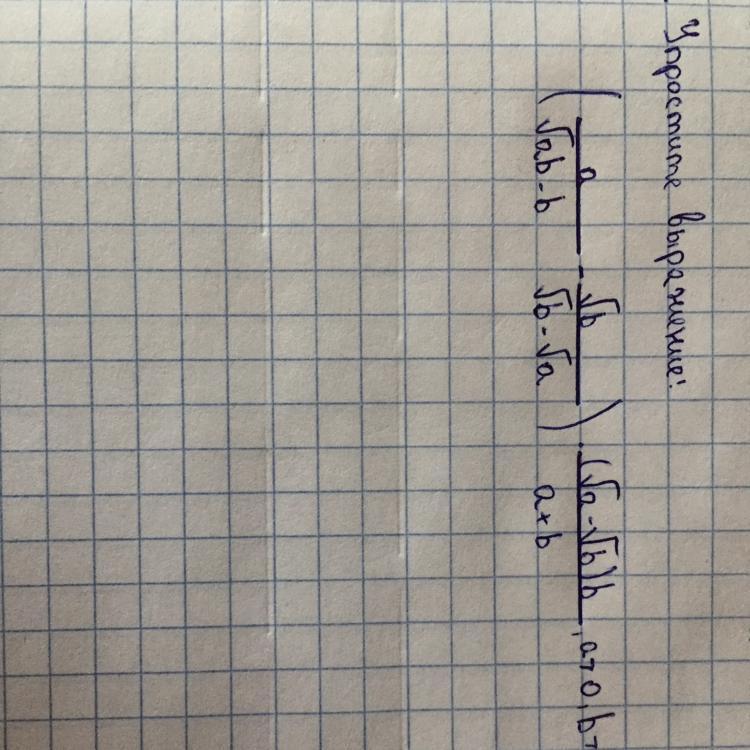 Упростите выражение:
(a/(√ab - b) - √b/(√b - √a)) · (√a - √b)b/(a + b), a>0, b>